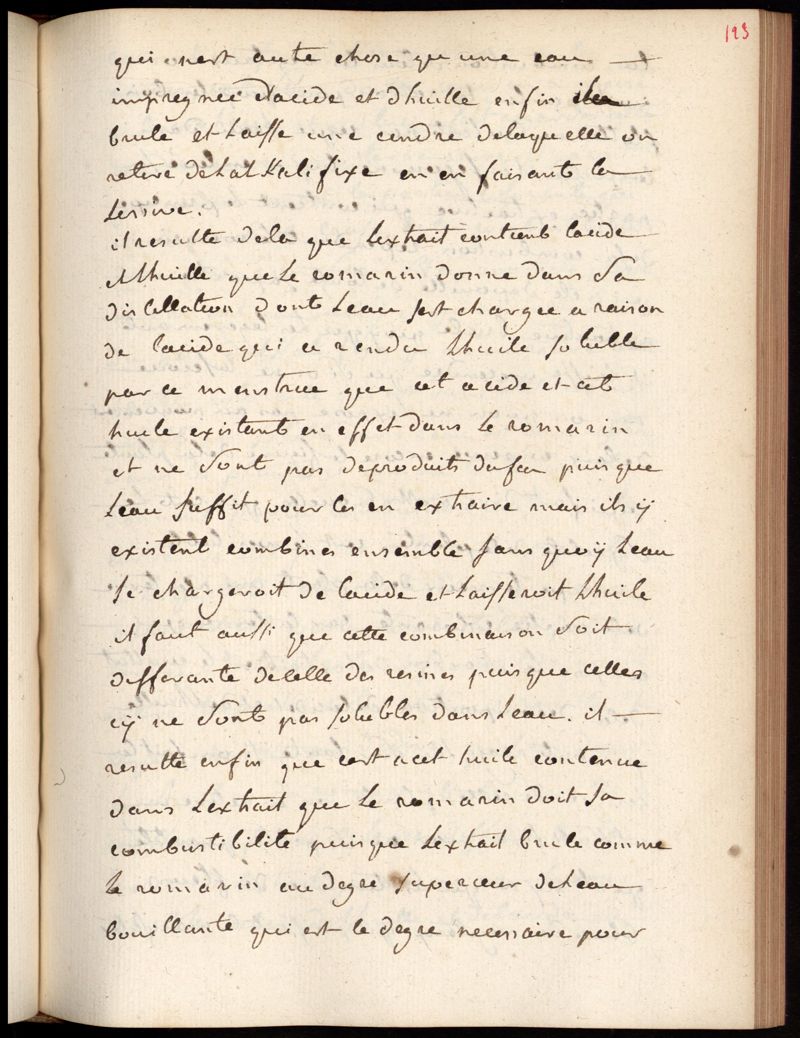 123
qui nest autte chose qu une eau —
impregneé d'acide et dhuille enfin il
brule et Laisse une cendre delaquelle on
retire deLalKali fixe en en faisants la
Lessive.
il resulte dela que Lextrait contient lacide
et Lhuille que Le romarin donne dans Sa
distillation dont Leau sest chargee a raison
de lacide qui a rendu Lhuile soluble
par ce menstrue que cet acide et cet
huile existants en effet dans Le romarin
et ne Sont pas deproduits dufeu puisque
Leau suffit pour les en extraire mais ils ÿ
existent combinés ensemble sans quoÿ Leau
se chargeroit de lacide et Laisseroit Lhuile
il faut aussi que cette combinaison Soit
differante decelle des resines puisque celles
cÿ ne Sont pas solubles dans Leau. il —
resulte enfin que cest acet huile contenue
dans Lextrait que Le romarin doit sa
combustibilité puisque Lextrait brule comme
le romarin au degre superieur deLeau
bouillante qui est le degre necessaire pour